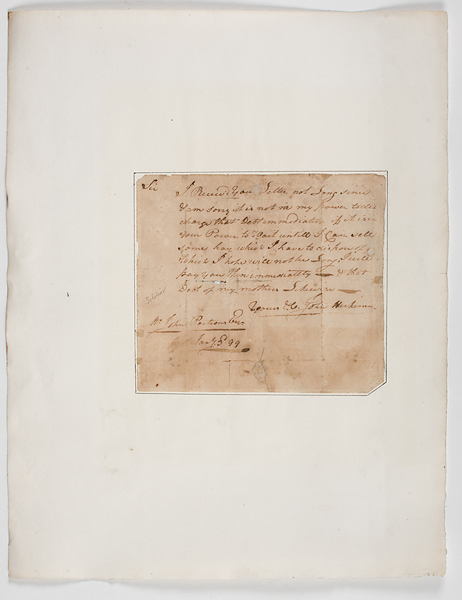 Sir I Receivd your Letter not Long since
I am sorry it is not in my power to dis
charge that Debt immediately if it is in
your Power to Wait untill I Can sell
some hay which I have to dispose of
which I hope will not be Long I will
pay you Then immediately & that
Debt of my mothers Likewise
Yours &c. John
Mr John Esqr
Jany 99